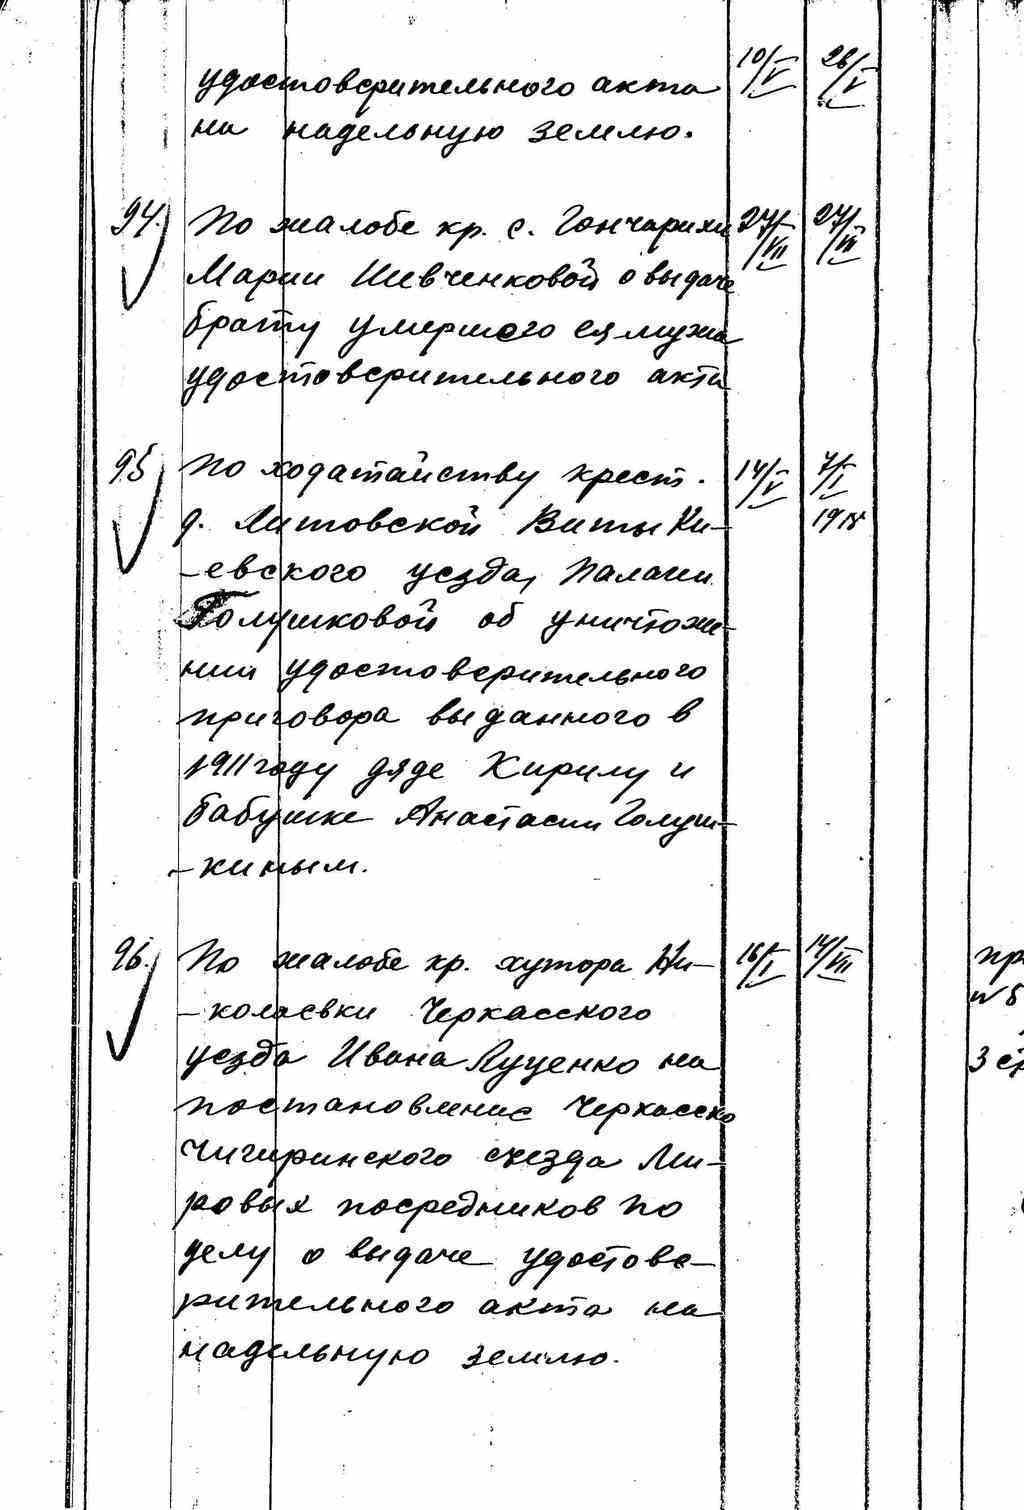 удостоверительного акта 10/V 26/V
на надельную землю.
94. По жалобе кр. с. Гончарихи 27/VII 27/VII
Марии Шевченковой о выдаче
брату умершого ея мужа
удостоверительного акта
95 По ходатайству крест. 14/V 7/I
д. Литовской Виты Ки- 19
-евского уезда, Палагеи
Голушковой об уничтоже-
нии удостоверительного
приговора выданного в
1911 году дяде Кирилу и
бабушке Анастасии Голуш-
-киным.
96. По жалобе кр. хутора Ни- 16/I 14/VIII пр
-колаевки Черкасского
уезда Ивана Луценко на 3 ст
постановление Черкасско
Чигиринского съезда Ми-
ровых посредников по
делу о выдаче удостове-
рительного акта на
надельную землю.